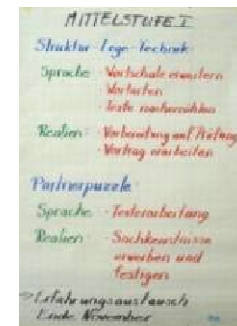 MITTELSTUFE I
Struktur-Lege-Technik
Sprache - Wortschatz erweitern
- Wortarten
- Texte nacherzählen
Realien - Vorbereitung auf Prüfung
- Vortrag erarbeiten
Partnerpuzzle
Sprache - Texterarbeitung
Realien - Sachkenntnisse
erwerben und
festigen
→ Erfahrungsaustausch
Ende November